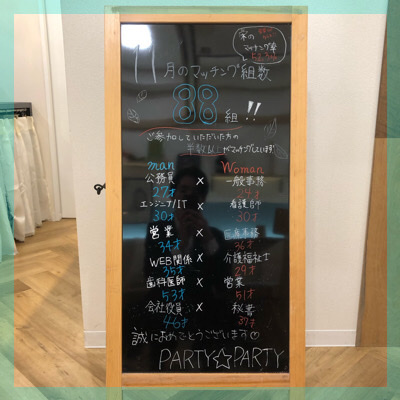 栄の
マッチング率
11月のマッチング組数
88組!!
ご参加していただいた方の
半数以上がマッチングしています!
man Woman
公務員 × 一般事務
27才 24才
エンジニア/IT × 看護師
30才 30才
営業 × 医療事務
34才 36才
WEB関係 × 介護福祉士
35才 29才
歯科医師 × 営業
53才 51才
会社役員 × 秘書
46才 37才
誠におめでとうございます♡
PARTY☆PARTY